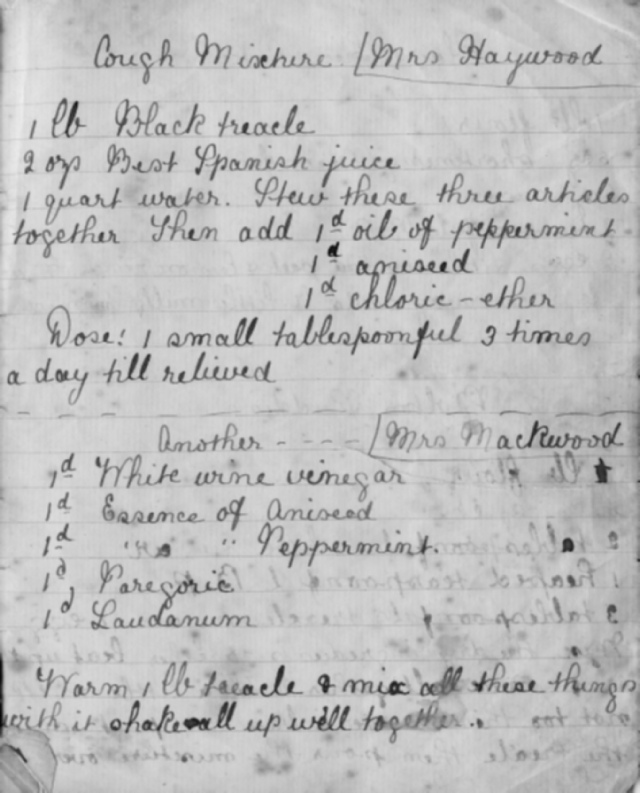 Cough Mixture / Mrs Haywood
1 lb Black treacle
2 ozs Best Spanish juice
1 quart water. Stew these three articles
together Then add 1d oil of peppermint
1d aniseed
1d chloric-ether
Dose! 1 small tablespoonful 3 times
a day till relieved
Another ---- / Mrs Mackwood
1d White wine vinegar
1d Essence of Aniseed
1d " " Peppermint
1d, Paregoric
1d Laudanum
Warm 1 lb treacle & mix all these things
with it shake all up well together.